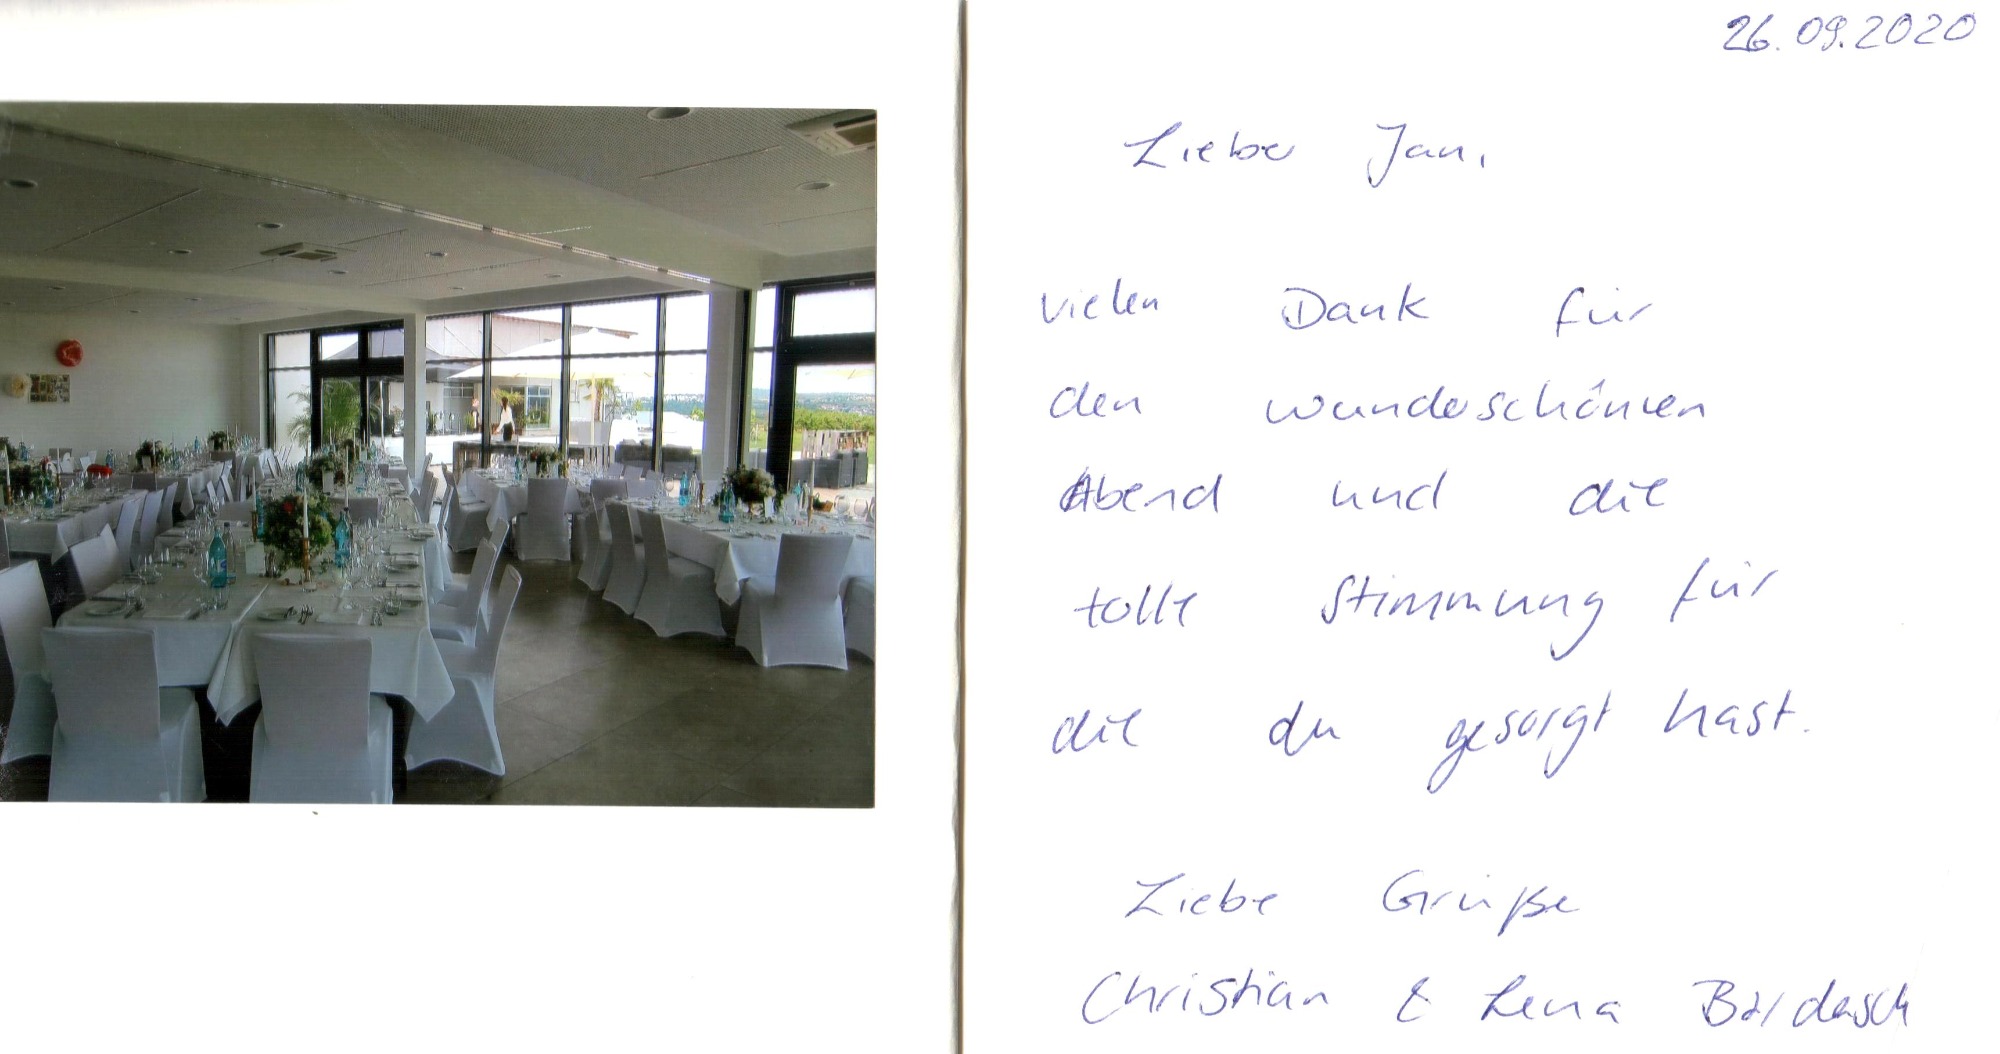 26.09.2020
Lieber Jan,
vielen Dank für
den wunderschönen
Abend und die
tolle Stimmung für
die du gesorgt hast.
Liebe Grüße
Christian & Lena Bardasch